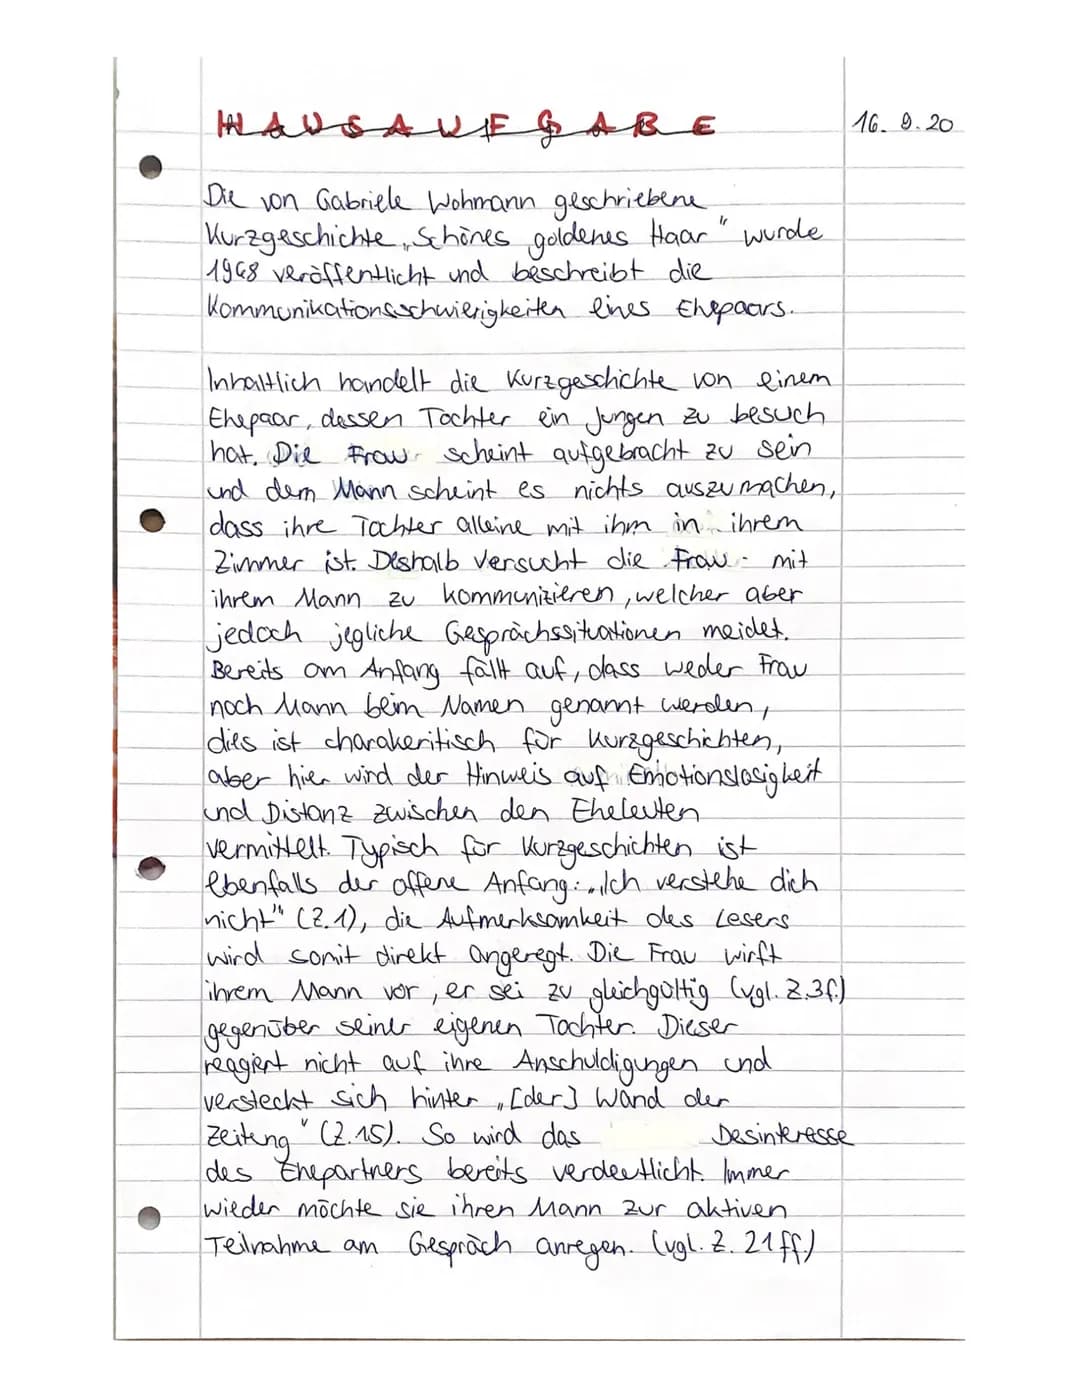 HAUSAUFGABE 16. 9. 20
Die von Gabriele Wohmann geschriebene
Kurzgeschichte „Schönes goldenes Haar" wurde
1968 veröffentlicht und beschreibt die
Kommunikationsschwierigkeiten eines Ehepaars.
Inhaltlich handelt die Kurzgeschichte von einem
Ehepaar, dessen Tochter ein Jungen zu besuch
hat. Die Frau scheint aufgebracht zu sein
und dem Mann scheint es nichts auszumachen,
dass ihre Tochter alleine mit ihm in ihrem
Zimmer ist. Deshalb versucht die Frau mit
ihrem Mann zu kommunizieren, welcher aber
jedoch jegliche Gesprächssituationen meidet.
Bereits am Anfang fällt auf, dass weder Frau
noch Mann beim Namen genannt werden,
dies ist charakeritisch für Kurzgeschichten,
aber hier wird der Hinweis auf Emotionslosigkeit
und Distanz zwischen den Eheleuten
vermittelt. Typisch für Kurzgeschichten ist
ebenfalls der offene Anfang: „Ich verstehe dich
nicht" (Z.1), die Aufmerksamkeit des Lesers
wird somit direkt angeregt. Die Frau wirft
ihrem Mann vor, er sei zu gleichgültig (vgl. Z.3f.)
gegenüber seiner eigenen Tochter. Dieser
reagiert nicht auf ihre Anschuldigungen und
versteckt sich hinter „[der] Wand der
Zeitung" (Z.15). So wird das Desinteresse
des Ehepartners bereits verdeutlicht. Immer
wieder möchte sie ihren Mann zur aktiven
Teilnahme am Gespräch anregen. (vgl. Z. 21ff.)